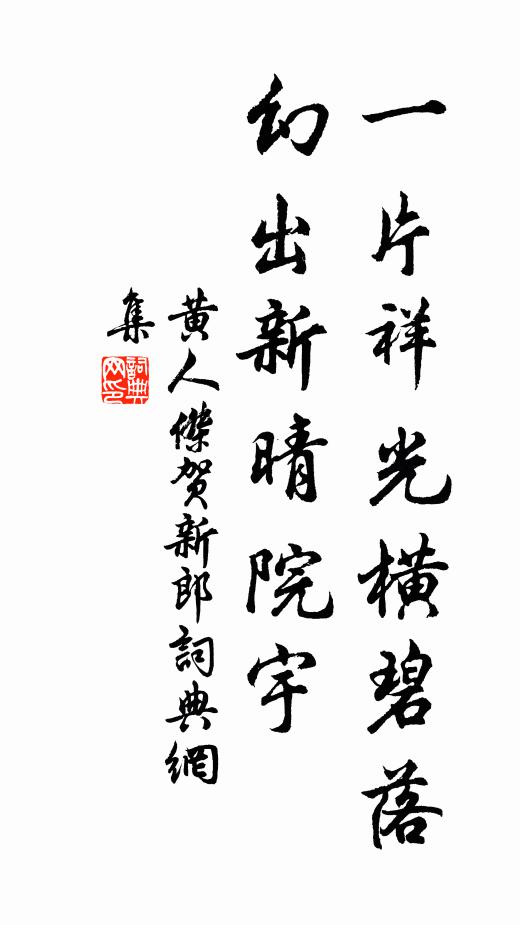 一片祥光橫碧落
幻出新晴院宇
黃人傑賀新郎詞典網
集
詞典网印